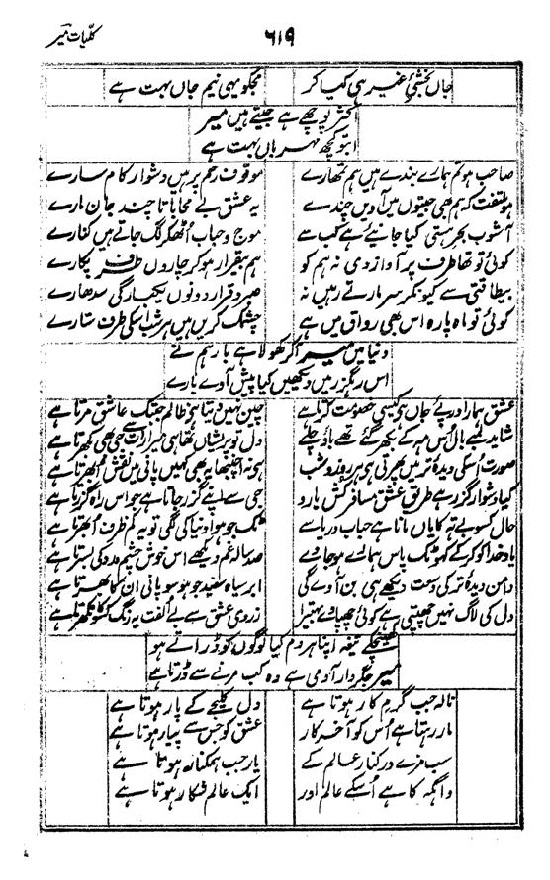 کلیات میر
۶۱۹
جاں بخشیِ غیر ہی کیا کر مجکو یہی نیم جاں بہت ہے
اکثر پوچھے ہے جیتے ہیں میر
اب تو کچھ مہرباں بہت ہے
صاحب ہو تم ہمارے بندے ہیں ہم تمھارے موقوف رحم پر ہیں دشوار کام سارے
ہو ملتفت کہ ہم بھی جیتوں میں آویں چندے یہ عشق بے محابا تا چند جان مارے
آشوب بحر ہستی کیا جانیے ہے کب سے موج و حباب اٹھکر لگ جاتے ہیں کنارے
کوئی تو تھا طرف پر آواز دی نہ ہم کو ہم بیقرار ہو کر چاروں طرف پکارے
بیطاقتی سے کیونکر سر مارتے رہیں نہ صبر و قرار دونوں یکبارگی سدھارے
کوئی تو ماہ پارہ اس بھی رواق میں ہے چشمک کریں ہیں ہر شب اسکی طرف ستارے
دنیا میں میر آکر کھولا ہے بار ہم نے
اس رہگزر میں دیکھیں کیا پیش آوے بارے
عشق ہمارا درپئے جاں ہے کیسی خصومت کرتا ہے چین نہیں دیتا ہے ظالم جبتک عاشق مرتا ہے
شاید لمبے بال اُس مہ کے بکھر گئے تھے باؤ چلے دل تو پریشاں تھا ہی میرا رات سے جی بھی بکھرتا ہے
صورت اُسکی دیدۂ تر میں پھرتی ہے ہر روز و شب ہے نہ اچنبھا یہ بھی کہیں پانی میں نقش ابھرتا ہے
کیا دشوار گزر ہے طریق عشق مسافر کش یارو جی سے اپنے گزر جاتا ہے جو اس راہ گزرتا ہے
حال کسو بے تہ کا یاں مانا ہے حباب دریا سے ٹک جو ہوا دنیا کی لگی تو یہ کم ظرف اُبھرتا ہے
یاد خدا کو کر کے کہو ٹک پاس ہمارے ہو جاوے صد سالہ غم دیکھے اس خوش چشم و رو کی بسرتا ہے
دامن دیدۂ تر کی وسعت دیکھے ہی بن آوے گی ابر سیاہ سفید جو ہو سو پانی ان کا بھرتا ہے
دل کی لاگ نہیں چھپتی ہے کوئی چھپاوے بہتیرا زردی عشق سے بے الفت یہ رنگ کسو کا نکھرتا ہے
کھینچ کے تیغہ اپنا ہر دم کیا لوگوں کو ڈراتے ہو
میر جگردار آدمی ہے وہ کب مرنے سے ڈرتا ہے
نالہ جب گرم کار ہوتا ہے دل کلیجے کے پار ہوتا ہے
مار رہتا ہے اُس کو آخر کار عشق کو جس سے پیار ہوتا ہے
سب مزے درکنار عالم کے یار جب ہمکنار ہوتا ہے
دامگہ کا ہے اُسکے عالم اور ایک عالم شکار ہوتا ہے